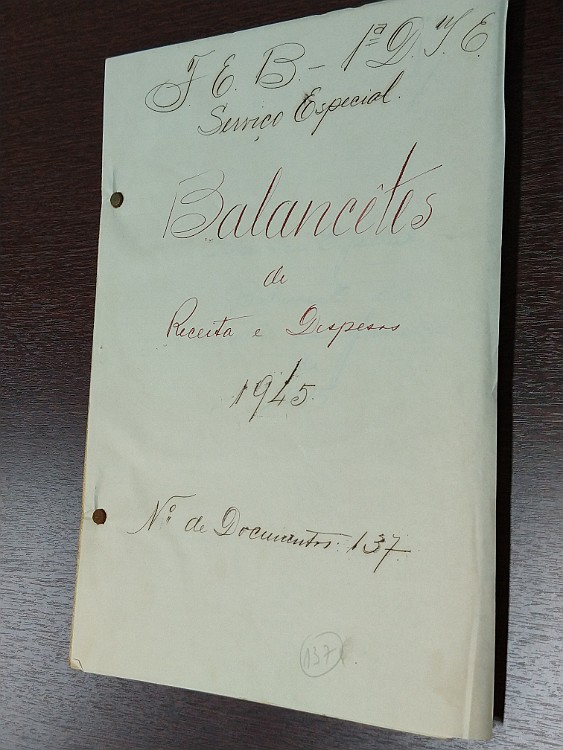 F. E. B. - 1ª D. I. E.
Serviço Especial.
Balancêtes
de
Receita e Despesas
1945.
Nº de Documentos: 137
137